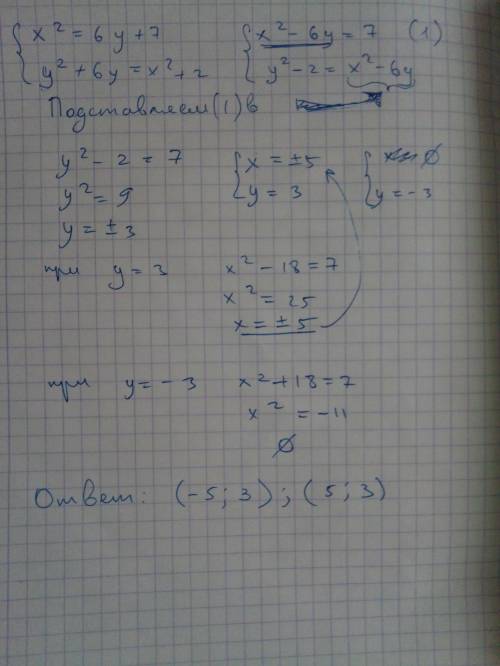 x² = 6y + 7    x² - 6y = 7 (1)
y² + 6y = x² + 2    y² - 2 = x² - 6y
Подставляем (1) в
y² - 2 = 7    x = ±5    ∅
y² = 9    y = 3    y = -3
y = ±3
при y = 3    x² - 18 = 7
x² = 25
x = ±5
при y = -3    x² + 18 = 7
x² = -11
∅
Ответ: (-5; 3); (5; 3)